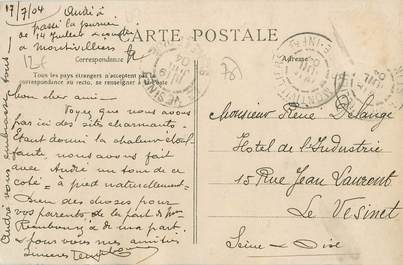 17/7/04
André a
passé la journée
du 14 Juillet
à Montivilliers
CARTE POSTALE
Correspondance
Tous les pays étrangers n'acceptent pas
correspondance au recto, se renseigner à la Poste
Mon cher ami
Voyez que nous avons
par ici des sites charmants.
Étant donné la chaleur étouf-
fante, nous avons fait
avec André un tour de ce
coté à pied naturellement
Bien des choses pour
vos parents, de la part de Mr
& de ma part.
& pour vous mes amitiés
sincères
André vous embrasse tous
Adresse
Monsieur René Delange
Hotel de l'Industrie
15 Rue Jean Laurent
Le Vésinet
Seine - Oise